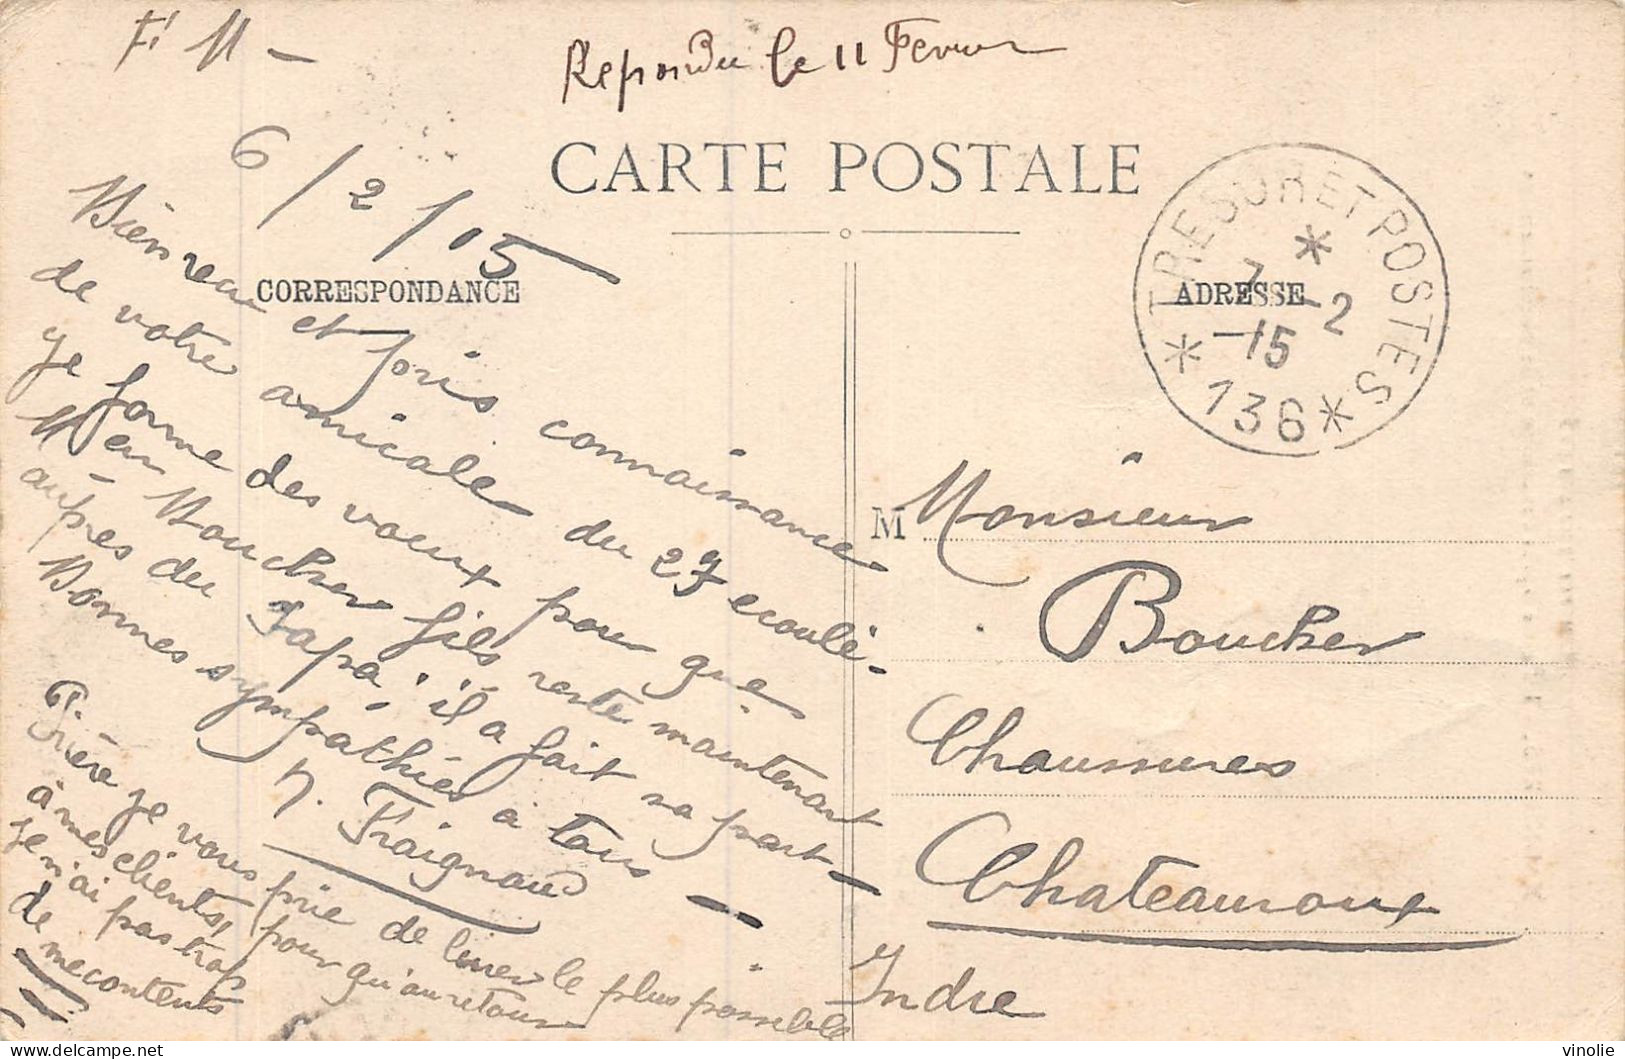 F. M -
Repondu le 11 Fevrier
CARTE POSTALE
6/2/15
CORRESPONDANCE
ADRESSE
TRESOR ET POSTES
7 - 2
- 15
* 136 *
Bien reçu et pris connaissance
de votre amicale du 27 ecoulé -
je forme des voeux pour que
Mon Boucher fils reste maintenant
auprès du Papa, il a fait sa part -
Bonnes sympathies à tous -
N. Fraignaud
Prière je vous prie de livrer le plus possible
à mes clients, pour qu'au retour
je n'ai pas trop
de mecontents
M Monsieur
Boucher
Chaussures
Chateauroux
Indre
vinolie